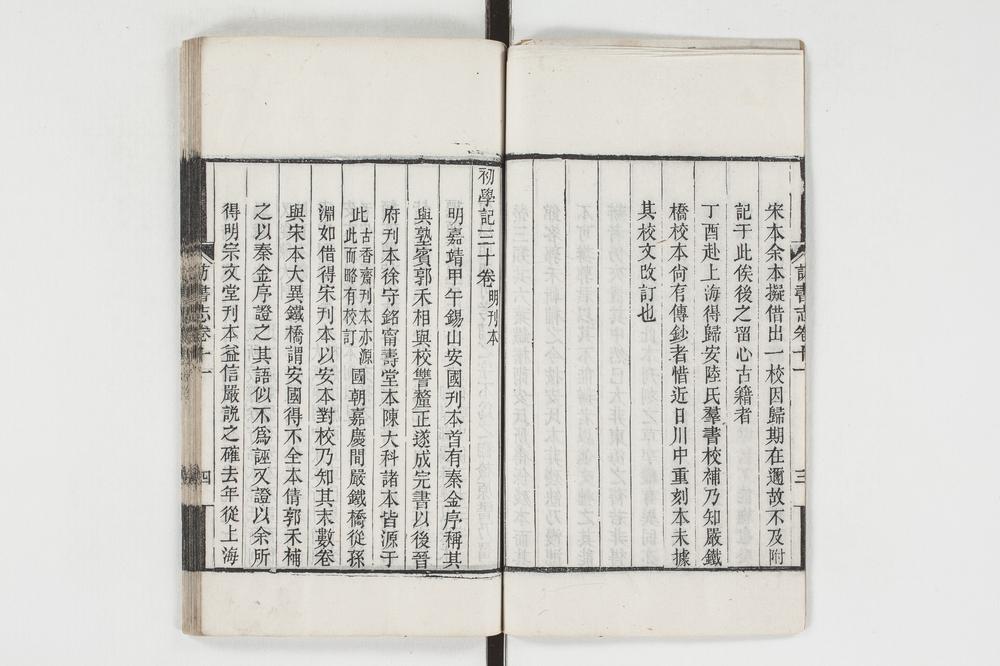 宋本余本擬借出一校因歸期在邇故不及附
記于此俟後之留心古籍者
丁酉赴上海得歸安陸氏羣書校補乃知嚴鐵
橋校本尙有傳鈔者惜近日川中重刻本未據
其校文改訂也
訪書志卷十一
三
初學記三十卷明刊本
明嘉靖甲午錫山安國刊本首有秦金序稱其
與塾賓郭禾相與校讐釐正遂成完書以後晉
府刊本徐守銘甯壽堂本陳大科諸本皆源于
此古香齋刊本亦源此而略有校訂國朝嘉慶間嚴鐵橋從孫
淵如借得宋刊本以安本對校乃知其末數卷
與宋本大異鐵橋謂安國得不全本倩郭禾補
之以秦金序證之其語似不爲誣又證以余所
得明宗文堂刊本益信嚴説之確去年從上海
訪書志卷十一
四